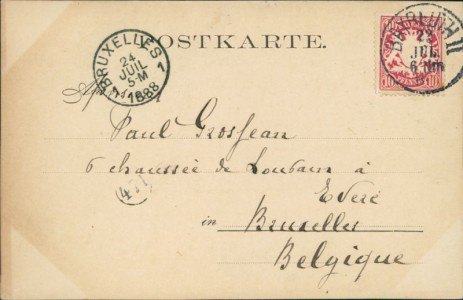 POSTKARTE.
BRUXELLES 1
24
JUIL
5-M
1888
22
JUL
An
Paul Grosjean
6 chaussée de Louvain à
Evere
in Bruxelles
Belgique